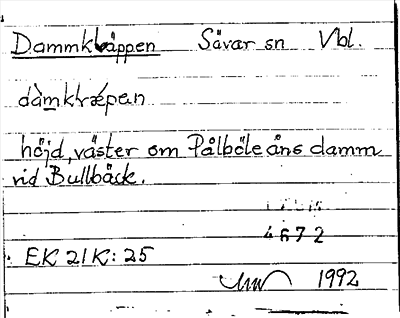 Dammkläppen Sävar sn Vbl.
höjd, väster om Pålböleåns damm
vid Bullbäck.
4672
EK 21K: 25
1992